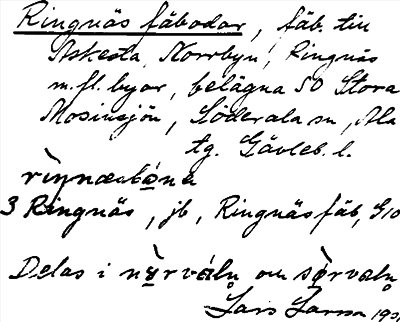 Ringnäs fäbodar, fäb. till
Askesta, Norrbyn, Ringnäs
m.fl. byar, belägna SO Stora
Mosinsjön, Söderala sn, Ala
tg. Gävleb. l.
3 Ringnäs, jb, Ringnäs fäb, G10
Delas i nørváln och sørvaln
Lars Larsson 190